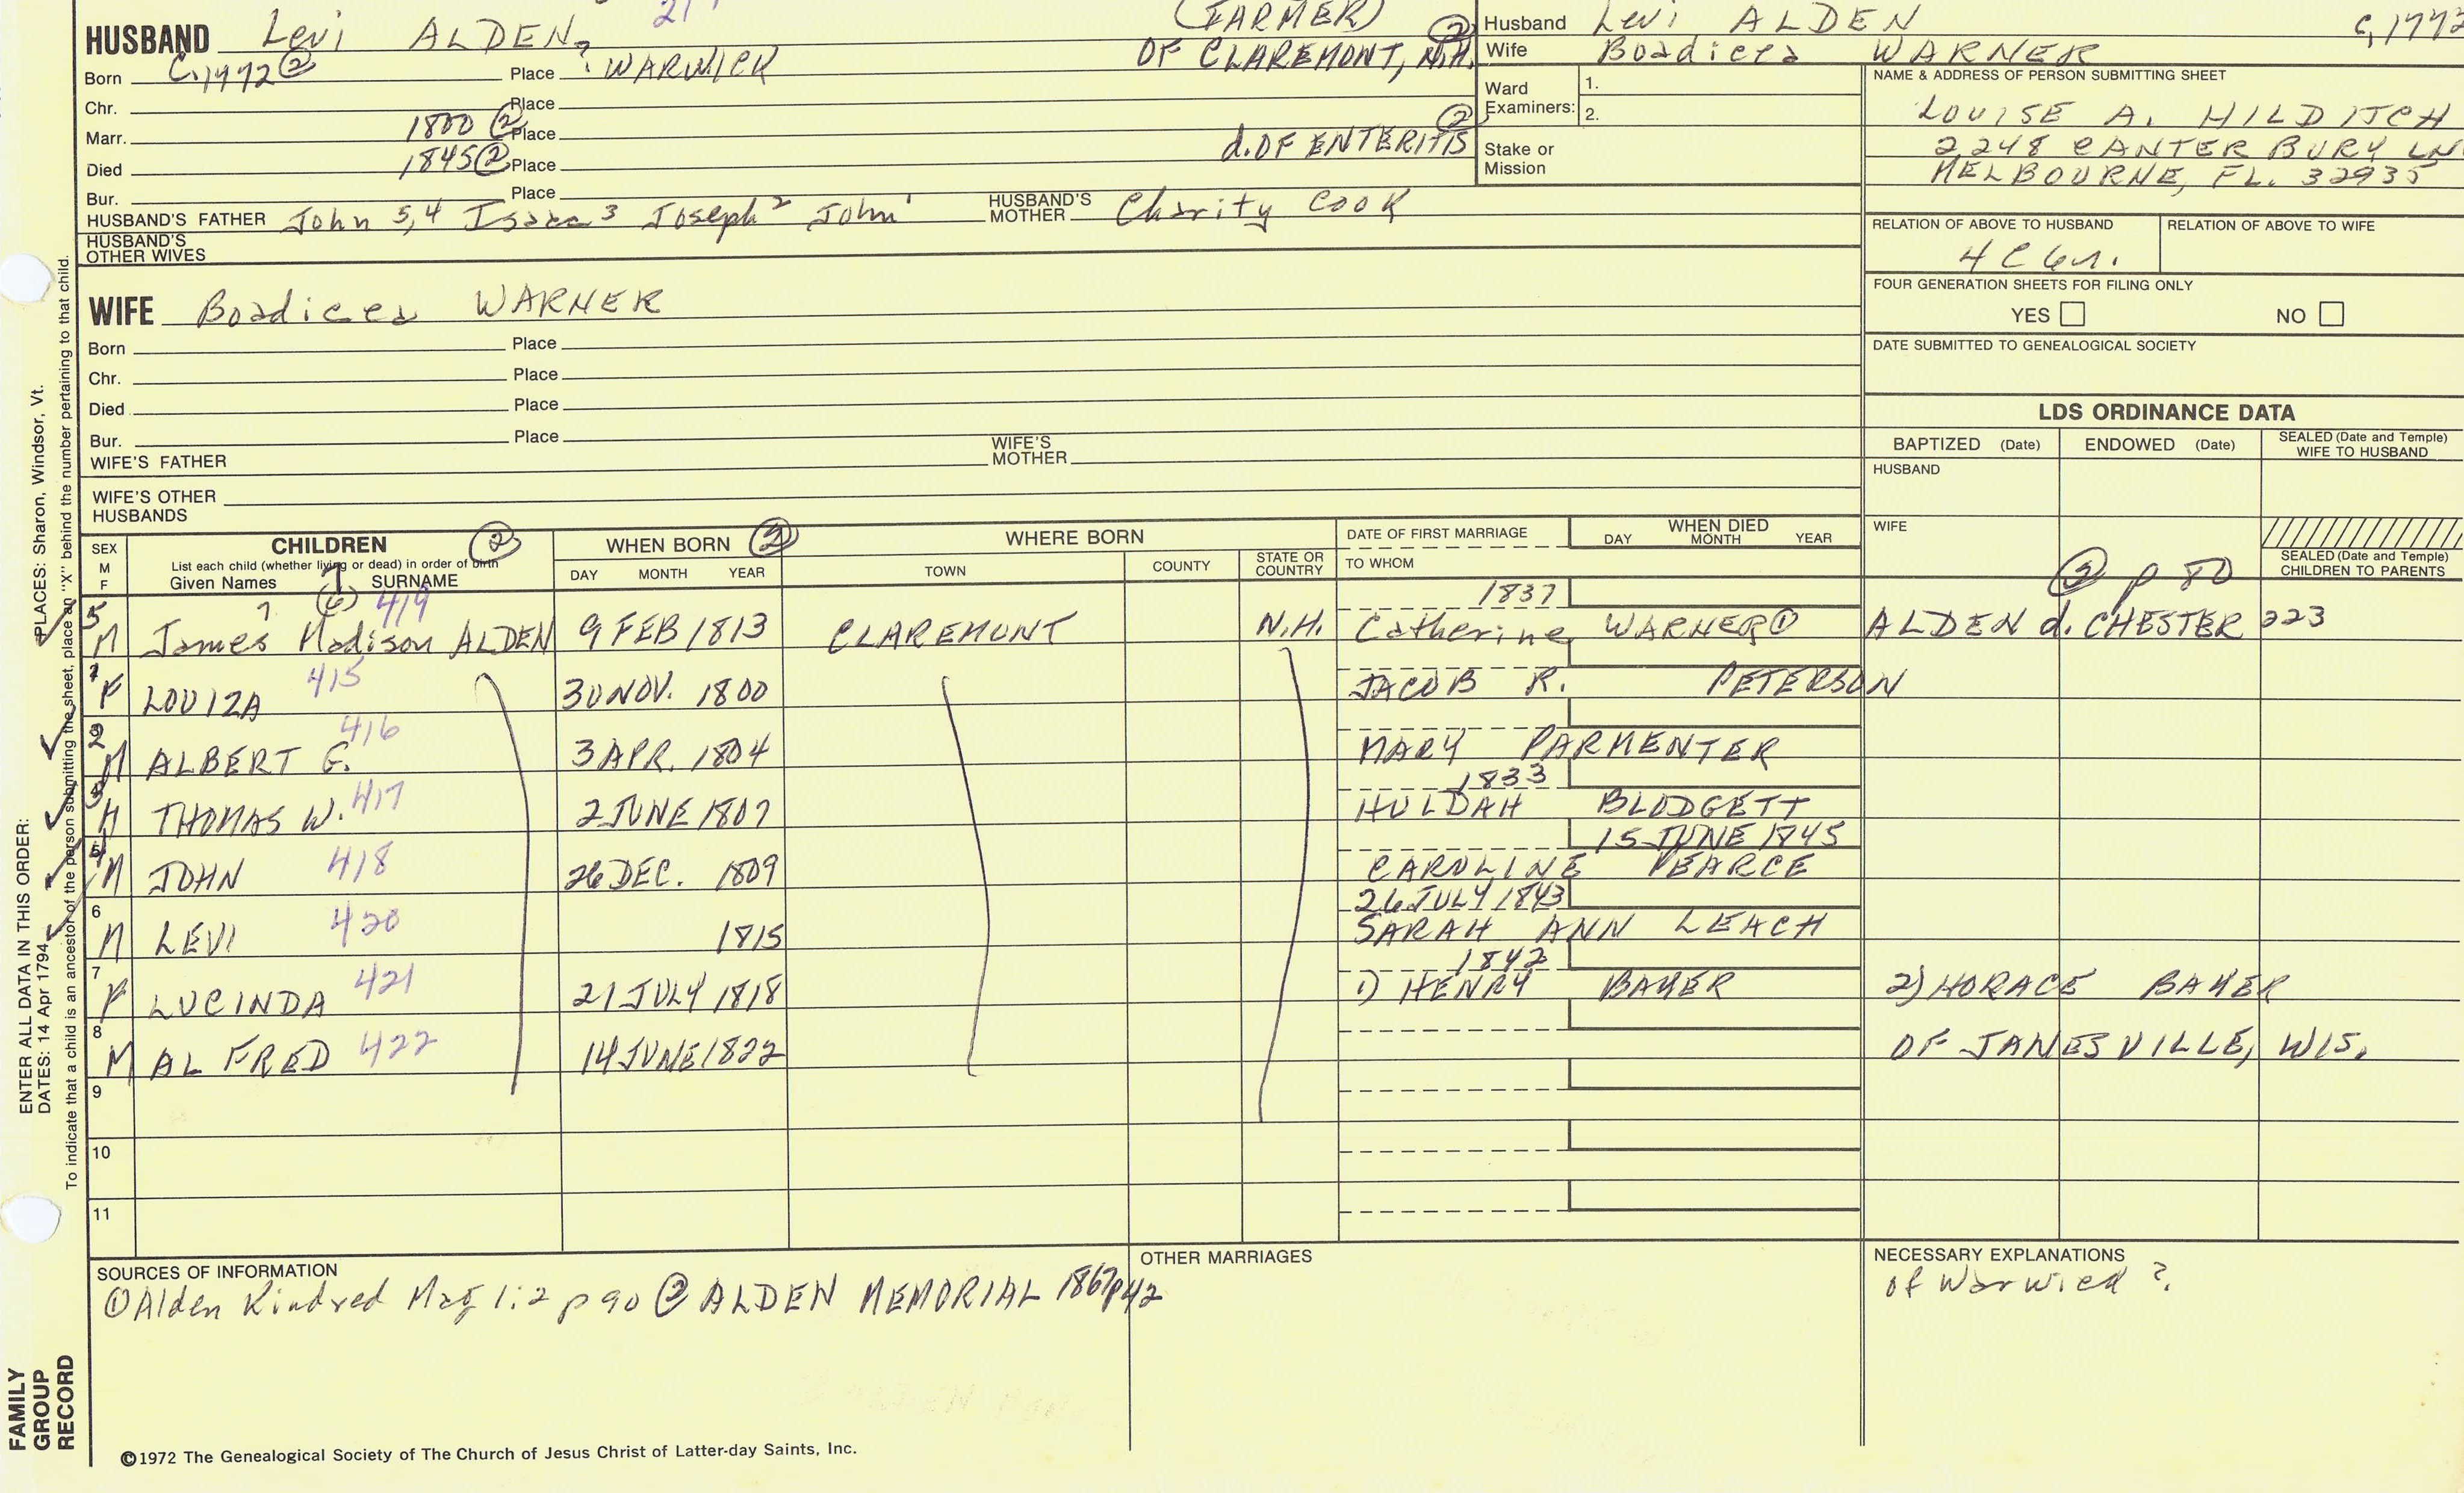 21
(FARMER)
HUSBAND Levi ALDEN
OF CLAREMONT, N.H. ②
Born C.1772 ② Place ? WARWICK
Chr. Place
Marr. 1800 ② Place
Died 1845 ② Place d. OF ENTERITIS ②
Bur. Place
HUSBAND'S FATHER John 5,4 Isaac 3 Joseph 2 John 1 HUSBAND'S MOTHER Charity Cook
HUSBAND'S OTHER WIVES
Husband Levi ALDEN C,1772
Wife Boadicea WARNER
Ward Examiners: 1.
2.
Stake or Mission
NAME & ADDRESS OF PERSON SUBMITTING SHEET
LOUISE A. HILDITCH
2248 CANTERBURY LN
MELBOURNE, FL. 32935
RELATION OF ABOVE TO HUSBAND RELATION OF ABOVE TO WIFE
4 C 6 r.
FOUR GENERATION SHEETS FOR FILING ONLY
YES NO
DATE SUBMITTED TO GENEALOGICAL SOCIETY
WIFE Boadicea WARNER
Born Place
Chr. Place
Died Place
Bur. Place
WIFE'S FATHER WIFE'S MOTHER
WIFE'S OTHER HUSBANDS
LDS ORDINANCE DATA
BAPTIZED (Date) ENDOWED (Date) SEALED (Date and Temple) WIFE TO HUSBAND
HUSBAND
WIFE
SEALED (Date and Temple) CHILDREN TO PARENTS
② p 80
SEX M F
CHILDREN ②
List each child (whether living or dead) in order of birth
Given Names SURNAME
WHEN BORN ②
DAY MONTH YEAR
WHERE BORN
TOWN COUNTY STATE OR COUNTRY
DATE OF FIRST MARRIAGE
TO WHOM
WHEN DIED
DAY MONTH YEAR
5 M James ? Madison ALDEN (6) 419 9 FEB 1813 CLAREMONT N.H. 1837 Catherine WARNER ① ALDEN d. CHESTER 223
1 F LOUIZA 415 30 NOV. 1800 JACOB R. PETERSON
2 M ALBERT G. 416 3 APR. 1804 MARY PARMENTER
3 M THOMAS W. 417 2 JUNE 1807 1833 HULDAH BLODGETT
4 M JOHN 418 26 DEC. 1809 15 JUNE 1845 CAROLINE PEARCE
6 M LEVI 420 1815 26 JULY 1843 SARAH ANN LEACH
7 F LUCINDA 421 21 JULY 1818 1842 1) HENRY BAKER 2) HORACE BAKER
8 M ALFRED 422 14 JUNE 1822 OF JANESVILLE, WIS.
9
10
11
SOURCES OF INFORMATION
① Alden Kindred Mag 1:2 p 90 ② ALDEN MEMORIAL 1867 p 42
OTHER MARRIAGES
NECESSARY EXPLANATIONS
of Warwick ?
©1972 The Genealogical Society of The Church of Jesus Christ of Latter-day Saints, Inc.
ENTER ALL DATA IN THIS ORDER:
DATES: 14 Apr 1794 PLACES: Sharon, Windsor, Vt.
To indicate that a child is an ancestor of the person submitting the sheet, place an "X" behind the number pertaining to that child.
FAMILY GROUP RECORD